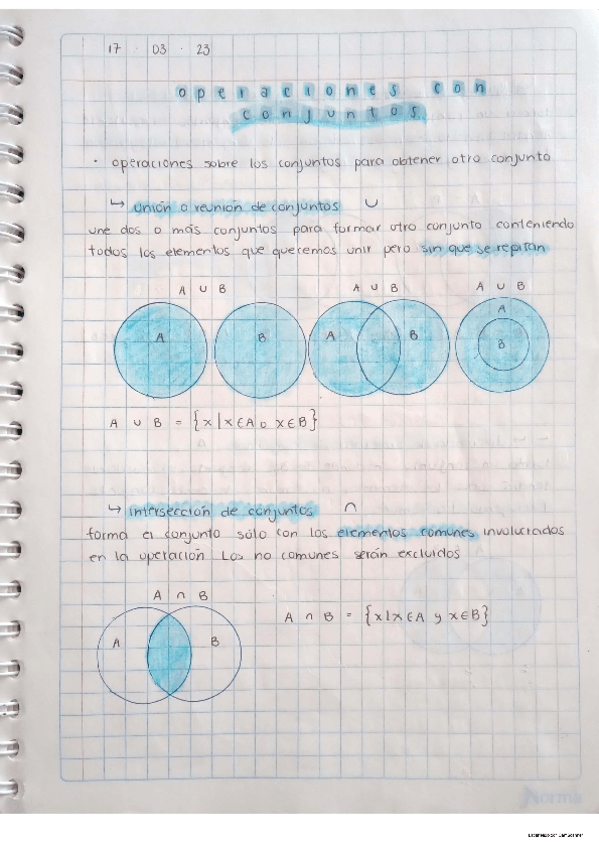 17 · 03 · 23
operaciones con
conjuntos
· operaciones sobre los conjuntos para obtener otro conjunto
↳ unión o reunión de conjuntos ∪
une dos o más conjuntos para formar otro conjunto conteniendo
todos los elementos que queremos unir pero sin que se repitan
A ∪ B A ∪ B A ∪ B
A B A B A B
A ∪ B = {x | x ∈ A o x ∈ B}
↳ intersección de conjuntos ∩
forma el conjunto sólo con los elementos comunes involucrados
en la operación Los no comunes serán excluidos
A ∩ B
A B
A ∩ B = {x | x ∈ A y x ∈ B}
Norma